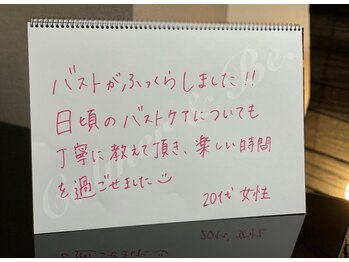 バストがふっくらしました!!
日頃のバストケアについても
丁寧に教えて頂き、楽しい時間
を過ごせました
20代 女性